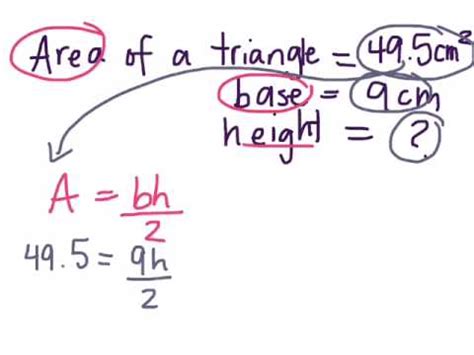 Area of a triangle = 49.5cm²
base = 9cm
height = ?
A = bh/2
49.5 = 9h/2